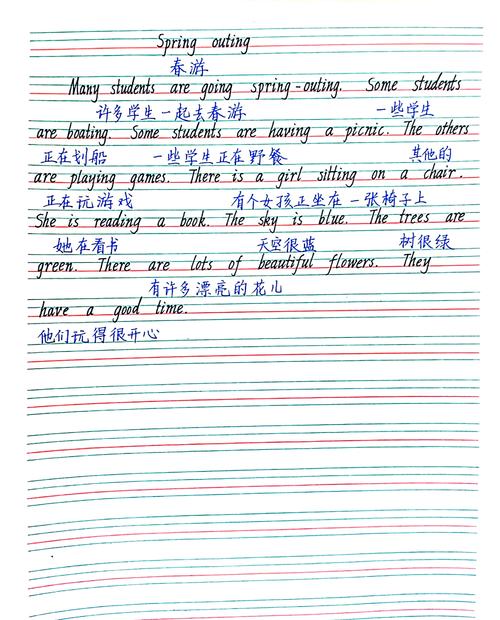 Spring outing
春游
Many students are going spring-outing. Some students
许多学生一起去春游 一些学生
are boating. Some students are having a picnic. The others
正在划船 一些学生正在野餐 其他的
are playing games. There is a girl sitting on a chair.
正在玩游戏 有个女孩正坐在一张椅子上
She is reading a book. The sky is blue. The trees are
她在看书 天空很蓝 树很绿
green. There are lots of beautiful flowers. They
有许多漂亮的花儿
have a good time.
他们玩得很开心